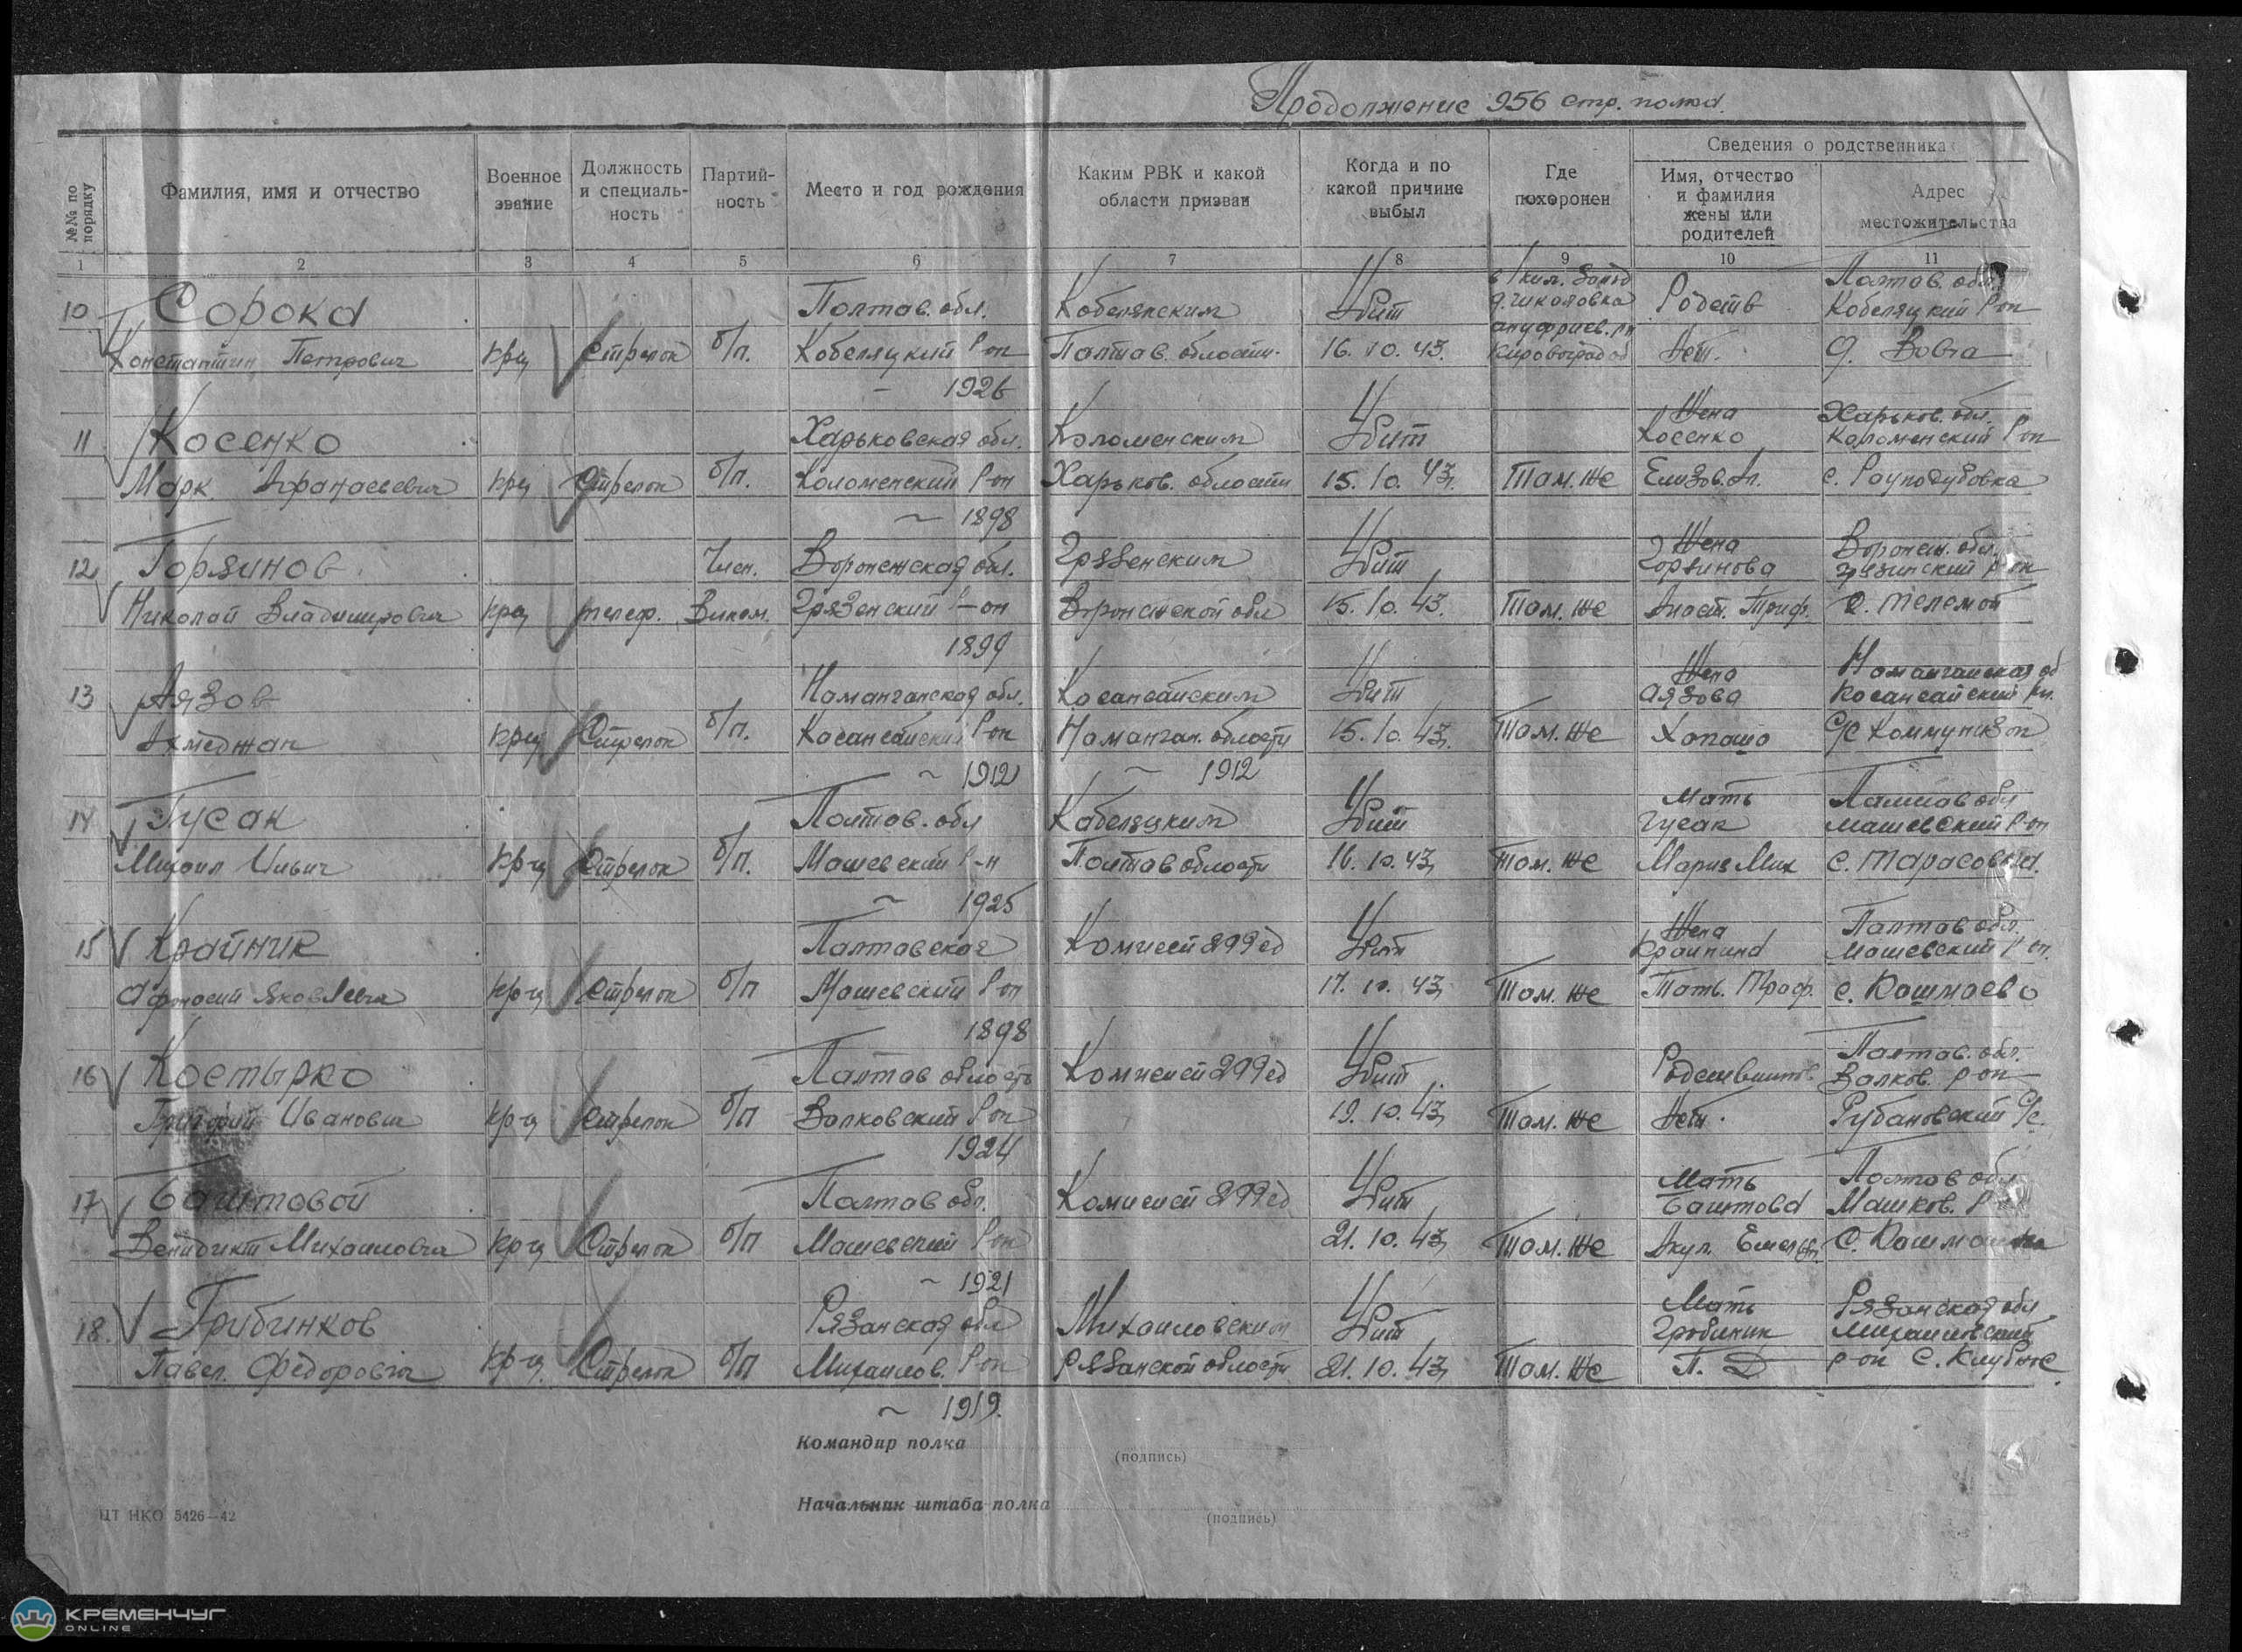 Продолжение 956 стр. полка.
№№ по порядку
Фамилия, имя и отчество
Военное звание
Должность и специаль-ность
Партий-ность
Место и год рождения
Каким РВК и какой области призван
Когда и по какой причине выбыл
Где похоронен
Сведения о родственниках
Имя, отчество и фамилия жены или родителей
Адрес местожительства
1 2 3 4 5 6 7 8 9 10 11
10 Сорока Полтав. обл. Кобелякским Убит Полтав. обл.
Константин Петрович кр-ц Стрелок б/п. Кобеляцкий р-он Полтав. области. 16.10.43. Кировоград об Нет. Кобеляцкий р-он
1926
11 Косенко Харьковская обл. Коломенским Убит Жена Косенко Харьков. обл. Коломенский р-он
Марк кр-ц Стрелок б/п. Коломенский р-он Харьков. области 15.10.43. Там.же Елизов. с.
~ 1898
12 Горяинов Член. Воронежская обл. Грязенским Убит Жена Горяинова Воронеж. обл. Грязинский р-он
Николай Владимирович кр-ц телеф. Вкком. Грязенский р-он Воронежской обл 15.10.43. Там.же
1899
13 Аязов Наманганская обл. Косансайским Убит Жена Аязова Наманганская об Косансайский рн.
Ахмеджан кр-ц Стрелок б/п. Касансайский р-он Наманган. области 15.10.43. Там.же
~ 1912 ~ 1912
14 Гусак Полтав. обл Кабеляцким Убит Мать Гусак Полтав обл Машевский р-он
Михаил Ильич кр-ц Стрелок б/п. Машевский р-н Полтав области 16.10.43. Там.же Мария Мих с. Тарасовка.
~ 1925
15 Крайник Палтавская Комисей 299 сд Убит Жена Палтав обл. Машевский р-он.
Афонасий Яковлевич кр-ц Стрелок б/п Машевский р-он 17.10.43. Там.же
1898
16 Костырко Палтав область Комисией 299 сд Убит Палтав. обл. Валков. р-он
Григорий Иванович кр-ц Стрелок б/п Волковский р-он 19.10.43. Там.же Нет. Рубановский с/с.
1924
17 Баштовой Полтав обл. Комисией 299 сд Убит Мать Баштова Полтав обл Машков.
Венидикт Михайлович кр-ц Стрелок б/п Машевский р-он 21.10.43. Там.же Акул.
~ 1921
18. Грибинков Рязанская обл Михаиловским Убит Мать Рязанская обл Михаиловский
Павел. Федорович кр-ц Стрелок б/п Михаилов. р-он Рязанской области 21.10.43. Там.же р-он с.
~ 1919.
Командир полка
(подпись)
Начальник штаба полка
(подпись)
ЦТ НКО 5426—42
КРЕМЕНЧУГ
ONLINE